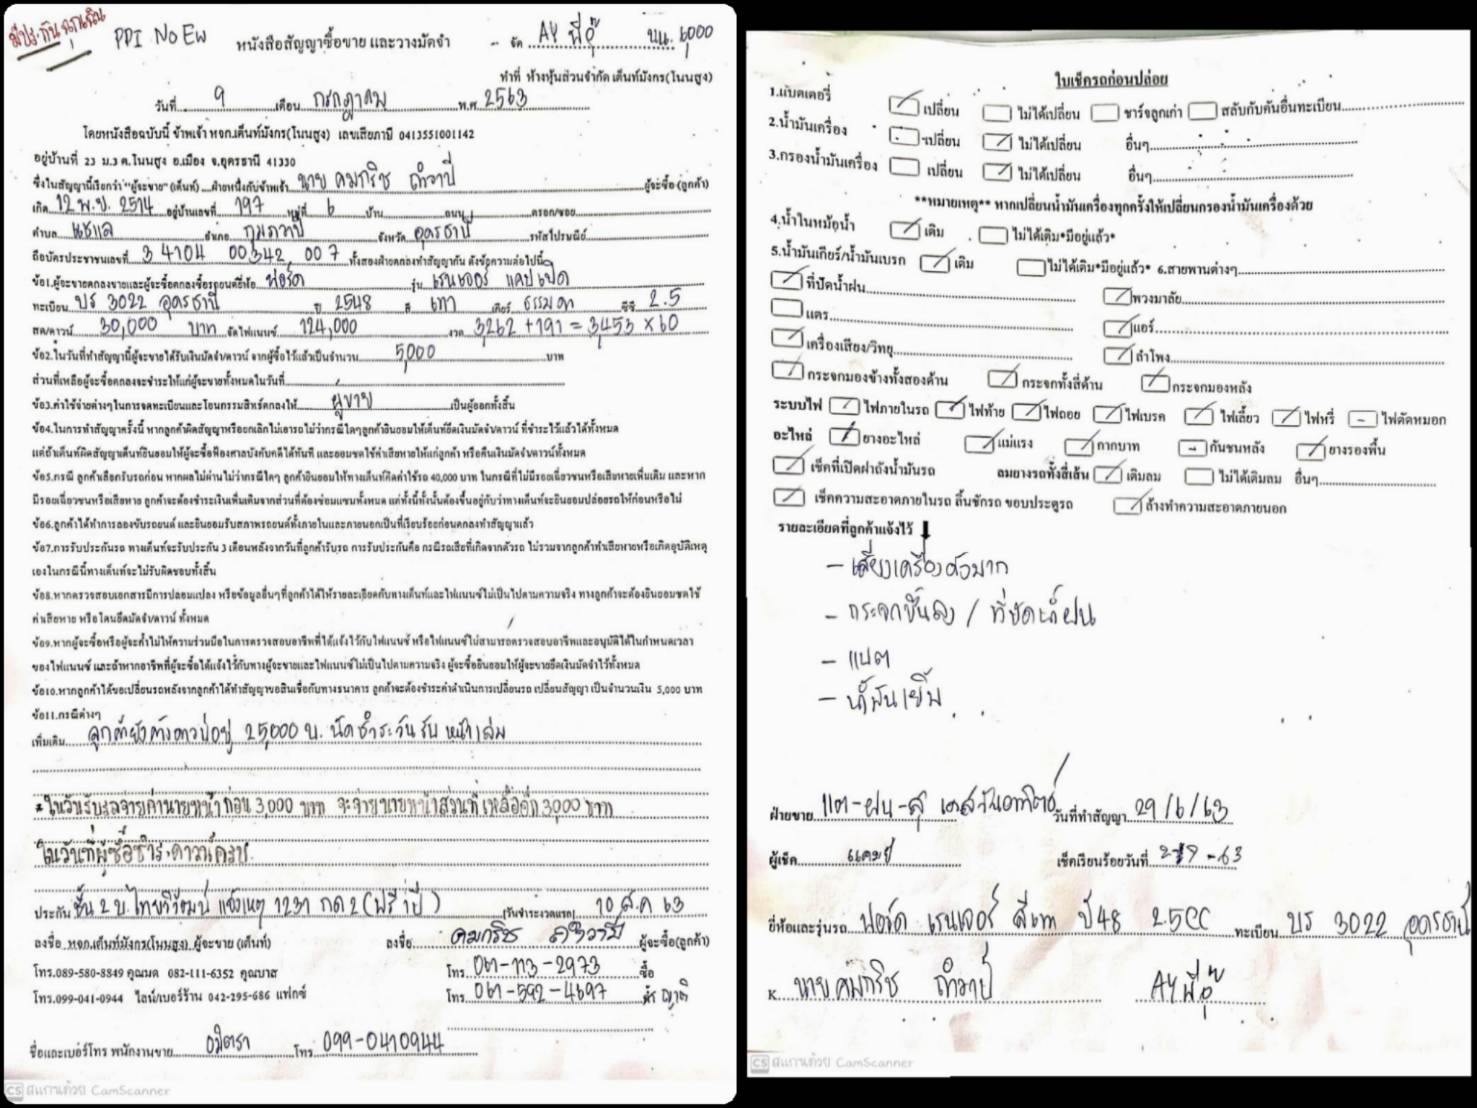 มีประกันฉุกเฉิน
PPI No EW
หนังสือสัญญาซื้อขาย และวางมัดจำ
- จัด AY พี่อุ๊ นน. 6000
ทำที่ ห้างหุ้นส่วนจำกัด เต็นท์มังกร(โนนสูง)
วันที่ 9 เดือน กรกฎาคม พ.ศ 2563
โดยหนังสือฉบับนี้ ข้าพเจ้า หจก.เต็นท์มังกร(โนนสูง) เลขเสียภาษี 0413551001142
อยู่บ้านที่ 23 ม.3 ต.โนนสูง อ.เมือง จ.อุดรธานี 41330
ซึ่งในสัญญานี้เรียกว่า "ผู้จะขาย" (เต็นท์) ฝ่ายหนึ่งกับข้าพเจ้า นาย คมกริช ถ้ำวาปี ผู้จะซื้อ (ลูกค้า)
เกิด 12 พ.ย. 2514 อยู่บ้านเลขที่ 197 หมู่ที่ 6 บ้าน ถนน ตรอก/ซอย
ตำบล แชแล อำเภอ กุมภวาปี จังหวัด อุดรธานี รหัสไปรษณีย์
ถือบัตรประชาชนเลขที่ 3 4104 00342 00 7 ทั้งสองฝ่ายตกลงทำสัญญากัน ดังข้อความต่อไปนี้
ข้อ1.ผู้จะขายตกลงขายและผู้จะซื้อตกลงซื้อรถยนต์ยี่ห้อ ฟอร์ด รุ่น เรนเจอร์ แคปเปิด
ทะเบียน บร 3022 อุดรธานี ปี 2548 สี เทา เกียร์ ธรรมดา ซีซี 2.5
สด/ดาวน์ 30,000 บาท จัดไฟแนนซ์ 124,000 งวด 3262 + 191 = 3453 x 60
ข้อ2.ในวันที่ทำสัญญานี้ผู้จะขายได้รับเงินมัดจำ/ดาวน์ จากผู้ซื้อไว้แล้วเป็นจำนวน 5,000 บาท
ส่วนที่เหลือผู้จะซื้อตกลงจะชำระให้แก่ผู้จะขายทั้งหมดในวันที่
ข้อ3.ค่าใช้จ่ายต่างๆในการจดทะเบียนและโอนกรรมสิทธ์ตกลงให้ ผู้ขาย เป็นผู้ออกทั้งสิ้น
ข้อ4.ในการทำสัญญาครั้งนี้ หากลูกค้าผิดสัญญาหรือยกเลิกไม่เอารถไม่ว่ากรณีใดๆลูกค้ายินยอมให้เต็นท์ยึดเงินมัดจำ/ดาวน์ ที่ชำระไว้แล้วได้ทั้งหมด
แต่ถ้าเต็นท์ผิดสัญญาเต็นท์ยินยอมให้ผู้จะซื้อฟ้องศาลบังคับคดีได้ทันที และยอมชดใช้ค่าเสียหายให้แก่ลูกค้า หรือคืนเงินมัดจำ/ดาวน์ทั้งหมด
ข้อ5.กรณี ลูกค้าเลือกรับรถก่อน หากผลไม่ผ่านไม่ว่ากรณีใดๆ ลูกค้ายินยอมให้ทางเต็นท์คิดค่าใช้รถ 40,000 บาท ในกรณีที่ไม่มีรอยเฉี่ยวชนหรือเสียหายเพิ่มเติม และหาก
มีรอยเฉี่ยวชนหรือเสียหาย ลูกค้าจะต้องชำระเงินเพิ่มเติมจากส่วนที่ต้องซ่อมแซมทั้งหมด แต่ทั้งนี้ทั้งนั้นต้องขึ้นอยู่กับว่าทางเต็นท์จะยินยอมปล่อยรถให้ก่อนหรือไม่
ข้อ6.ลูกค้าได้ทำการลองขับรถยนต์ และยินยอมรับสภาพรถยนต์ทั้งภายในและภายนอกเป็นที่เรียบร้อยก่อนตกลงทำสัญญาแล้ว
ข้อ7.การรับประกันรถ ทางเต็นท์จะรับประกัน 3 เดือนหลังจากวันที่ลูกค้ารับรถ การรับประกันคือ กรณีรถเสียที่เกิดจากตัวรถ ไม่รวมจากลูกค้าทำเสียหายหรือเกิดอุบัติเหตุ
เองในกรณีนี้ทางเต็นท์จะไม่รับผิดชอบทั้งสิ้น
ข้อ8.หากตรวจสอบเอกสารมีการปลอมแปลง หรือข้อมูลอื่นๆที่ลูกค้าได้ให้รายละเอียดกับทางเต็นท์และไฟแนนซ์ไม่เป็นไปตามความจริง ทางลูกค้าจะต้องยินยอมชดใช้
ค่าเสียหาย หรือโดนยึดมัดจำ/ดาวน์ ทั้งหมด
ข้อ9.หากผู้จะซื้อหรือผู้จะค้ำไม่ให้ความร่วมมือในการตรวจสอบอาชีพที่ได้แจ้งไว้กับไฟแนนซ์ หรือไฟแนนซ์ไม่สามารถตรวจสอบอาชีพและอนุมัติได้ในกำหนดเวลา
ของไฟแนนซ์ และถ้าหากอาชีพที่ผู้จะซื้อได้แจ้งไว้กับทางผู้จะขายและไฟแนนซ์ไม่เป็นไปตามความจริง ผู้จะซื้อยินยอมให้ผู้จะขายยึดเงินมัดจำไว้ทั้งหมด
ข้อ10.หากลูกค้าได้ขอเปลี่ยนรถหลังจากลูกค้าได้ทำสัญญาขอสินเชื่อกับทางธนาคาร ลูกค้าจะต้องชำระค่าดำเนินการเปลี่ยนรถ เปลี่ยนสัญญา เป็นจำนวนเงิน 5,000 บาท
ข้อ11.กรณีต่างๆ
เพิ่มเติม ลูกค้ายังค้างดาวน์อยู่ 25,000 บ. นัดชำระวันรับ หน้าเล่ม
* ในวันรับรถจ่ายค่านายหน้าก่อน 3,000 บาท จะจ่ายนายหน้าส่วนที่เหลืออีก 3,000 บาท
ในวันที่ผู้ซื้อชำระดาวน์ครบ
ประกัน ชั้น 2 บ.ไทยวิวัฒน์ แจ้งเหตุ 1231 กด 2 (ฟรี 1 ปี) วันชำระงวดแรก 10 ส.ค 63
ลงชื่อ หจก.เต็นท์มังกร(โนนสูง) ผู้จะขาย (เต็นท์) ลงชื่อ คมกริช ถ้ำวาปี ผู้จะซื้อ(ลูกค้า)
โทร.089-580-8849 คุณมด 082-111-6352 คุณบาส โทร 061-113-2973 ซื้อ
โทร.099-041-0944 ไลน์/เบอร์ร้าน 042-295-686 แฟกซ์ โทร 061-592-4697 ญาติ
ชื่อและเบอร์โทร พนักงานขาย อมิตรา โทร 099-0410944
CS สแกนด้วย CamScanner
ใบเช็ครถก่อนปล่อย
1.แบตเตอรี่ เปลี่ยน ไม่ได้เปลี่ยน ชาร์จลูกเก่า สลับกับคันอื่นทะเบียน
2.น้ำมันเครื่อง เปลี่ยน ไม่ได้เปลี่ยน อื่นๆ
3.กรองน้ำมันเครื่อง เปลี่ยน ไม่ได้เปลี่ยน อื่นๆ
**หมายเหตุ** หากเปลี่ยนน้ำมันเครื่องทุกครั้งให้เปลี่ยนกรองน้ำมันเครื่องด้วย
4.น้ำในหม้อน้ำ เติม ไม่ได้เติม*มีอยู่แล้ว*
5.น้ำมันเกียร์/น้ำมันเบรก เติม ไม่ได้เติม*มีอยู่แล้ว* 6.สายพานต่างๆ
ที่ปัดน้ำฝน พวงมาลัย
แตร แอร์
เครื่องเสียง/วิทยุ ลำโพง
กระจกมองข้างทั้งสองด้าน กระจกทั้งสี่ด้าน กระจกมองหลัง
ระบบไฟ ไฟภายในรถ ไฟท้าย ไฟถอย ไฟเบรค ไฟเลี้ยว ไฟหรี่ ไฟตัดหมอก
อะไหล่ ยางอะไหล่ แม่แรง กากบาท กันชนหลัง ยางรองพื้น
เช็คที่เปิดฝาถังน้ำมันรถ ลมยางรถทั้งสี่เส้น เติมลม ไม่ได้เติมลม อื่นๆ
เช็คความสะอาดภายในรถ ลิ้นชักรถ ขอบประตูรถ ล้างทำความสะอาดภายนอก
รายละเอียดที่ลูกค้าแจ้งไว้
- เสียงเครื่องดังมาก
- กระจกขึ้นลง / ที่ปัดน้ำฝน
- แบต
- น้ำมันเยิ้ม
ฝ่ายขาย แต-ฝน-สุ วันที่ทำสัญญา 29/6/63
ผู้เช็ค แคมป์ เช็คเรียบร้อยวันที่
ยี่ห้อและรุ่นรถ ฟอร์ด เรนเจอร์ สีเทา ปี 48 2.5CC ทะเบียน บร 3022 อุดรธานี
K. นาย คมกริช ถ้ำวาปี AY พี่อุ๊
CS สแกนด้วย CamScanner